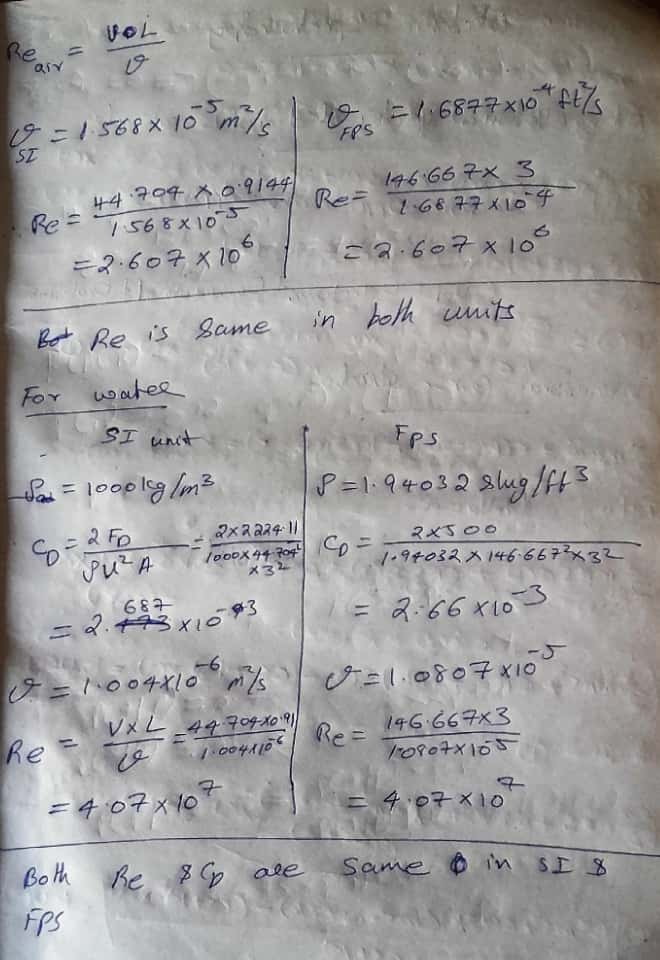 Re air = VOL / ϑ
ϑ SI = 1.568 × 10⁻⁵ m²/s
Re = 44.704 × 0.9144 / 1.568×10⁻⁵
= 2.607 × 10⁶
ϑ FPS = 1.6877×10⁻⁴ ft²/s
Re = 146.667 × 3 / 1.6877×10⁻⁴
= 2.607 × 10⁶
Re is Same in both units
For water
SI unit
ρ = 1000 kg/m³
C_D = 2 F_D / ρU² A = 2×2224.11 / 1000×44.704² × 3²
= 2.687 ×10⁻³
ϑ = 1.004×10⁻⁶ m²/s
Re = V×L / ϑ = 44.704×0.91 / 1.004×10⁻⁶
= 4.07 × 10⁷
Fps
ρ = 1.94032 Slug/ft³
C_D = 2×500 / 1.94032 × 146.667² × 3²
= 2.66 ×10⁻³
ϑ = 1.0807 ×10⁻⁵
Re = 146.667×3 / 1.0807×10⁻⁵
= 4.07 × 10⁷
Both Re & C_D are Same in SI &
FPS